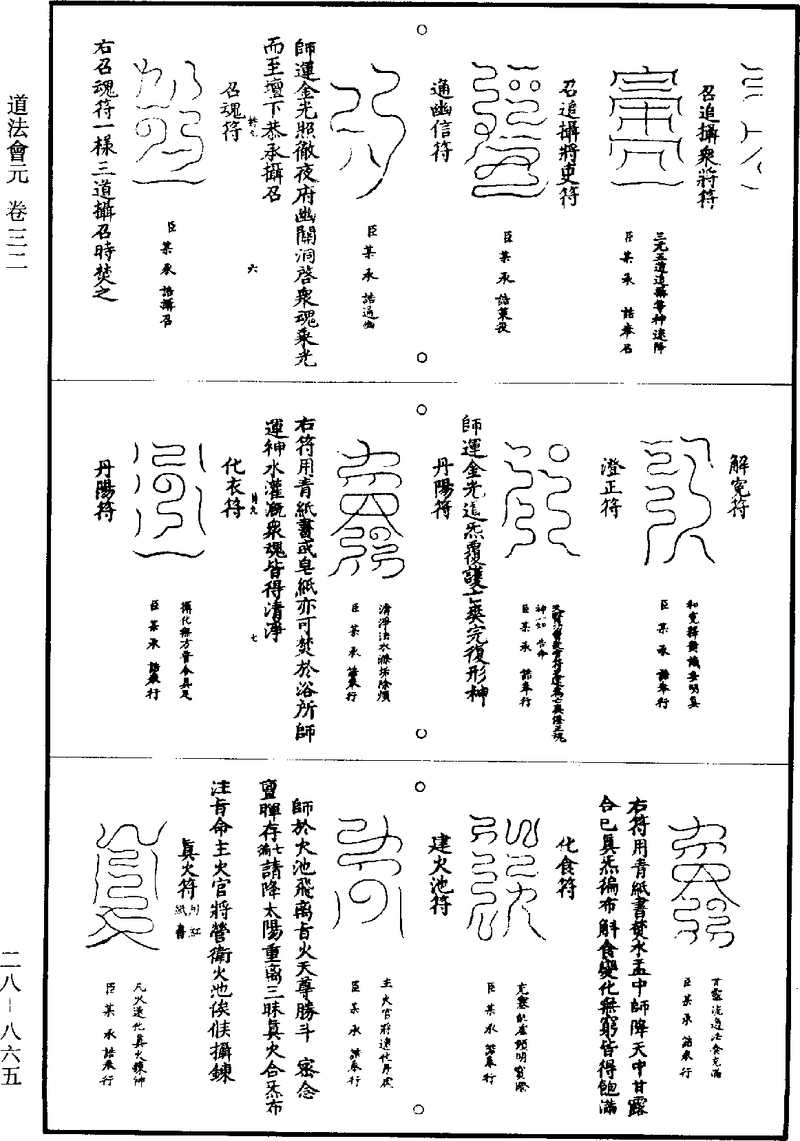 道法會元 卷三二
召追攝衆將符
臣 某 承 誥奉召
召追攝將吏符
臣 某 承 誥策役
通幽信符
臣 某 承 誥通幽
師運金光照徹夜府幽關洞啓衆魂乘光
而至壇下恭承攝召
召魂符
六
臣 某 承 誥攝召
右召魂符一樣三道攝召時焚之
解寃符
臣 某 承 誥奉行
澄正符
臣 某 承 誥奉行
師運金光造炁覆護亡爽完復形神
丹陽符
清淨法水滌除煩
臣 某 承 誥奉行
右符用青紙書或皂紙亦可焚於浴所師
運神水灌溉衆魂皆得清淨
化衣符
七
臣 某 承 誥奉行
丹陽符
甘露流潤法食充滿
臣 某 承 誥奉行
右符用青紙書焚水盂中師降天中甘露
合已真炁徧布斛食變化無窮皆得飽滿
化食符
臣 某 承 誥奉行
建火池符
主火官將速化丹皮
臣 某 承 誥奉行
師於火池飛离㫖火天尊勝斗 密念
靈暉存七徧請降太陽重离三昧真火合炁布
注㫖命主火官將營衛火池俟候攝鍊
真火符 用紅紙書
臣 某 承 誥奉行
二八－八六五